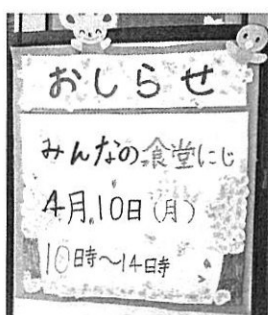 おしらせ
みんなの食堂にじ
4月10日(月)
10時~14時